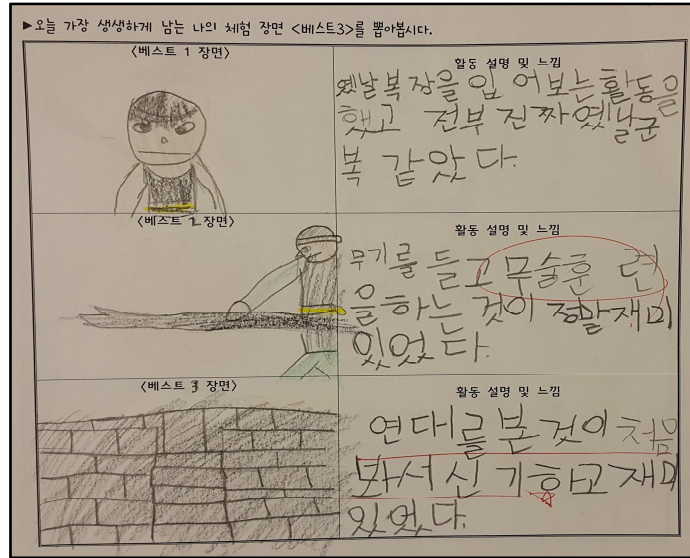 ▶오늘 가장 생생하게 남는 나의 체험 장면 <베스트3>를 뽑아봅시다.
<베스트 1 장면>
활동 설명 및 느낌
옜날복장을 입어보는활동을
했고 전부 진짜옜날군
복 같았다.
<베스트 2 장면>
활동 설명 및 느낌
무기를 들고 무술훈련
을하는 것이 정말재미
있었다.
<베스트 3 장면>
활동 설명 및 느낌
연대를 본것이 처음
봐서신기하고재미
있었다.